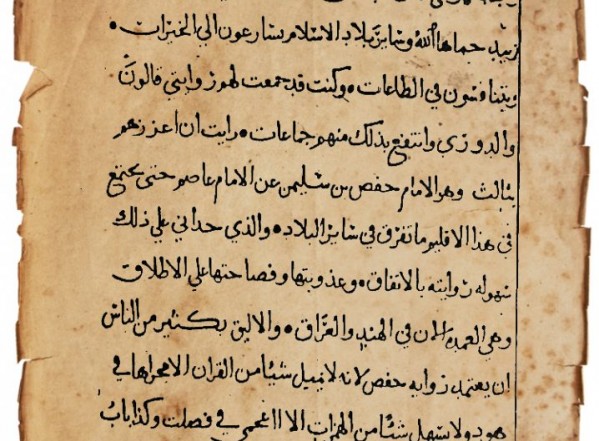 زبيد حماها الله وسائر بلاد الاسلام يسارعون الي الخيرات ٥
ويتنافسون في الطاعات ٥ وكنت قد جمعت لهم روايتي قالون
والدوري وانتفع بذلك منهم جماعات ٥ رايت ان اعززهم
بثالث وهو الامام حفص بن سليمن عن الامام عاصم حتي يجتمع
في هذا الاقليم ما تفرق في سائر البلاد ٥ والذي حداني علي ذلك
سهولة روايته بالاتفاق ٥ وعذوبتها وفصاحتها علي الاطلاق
وهي العمدة الان في الهند والعراق ٥ والاليق بكثير من الناس
ان يعتمد رواية حفص لانه لا يميل شيئا من القران الا مجراها في
هود ولا يسهل شيئا من الهمزات الا ااعجمي في فصلت وكذا باب